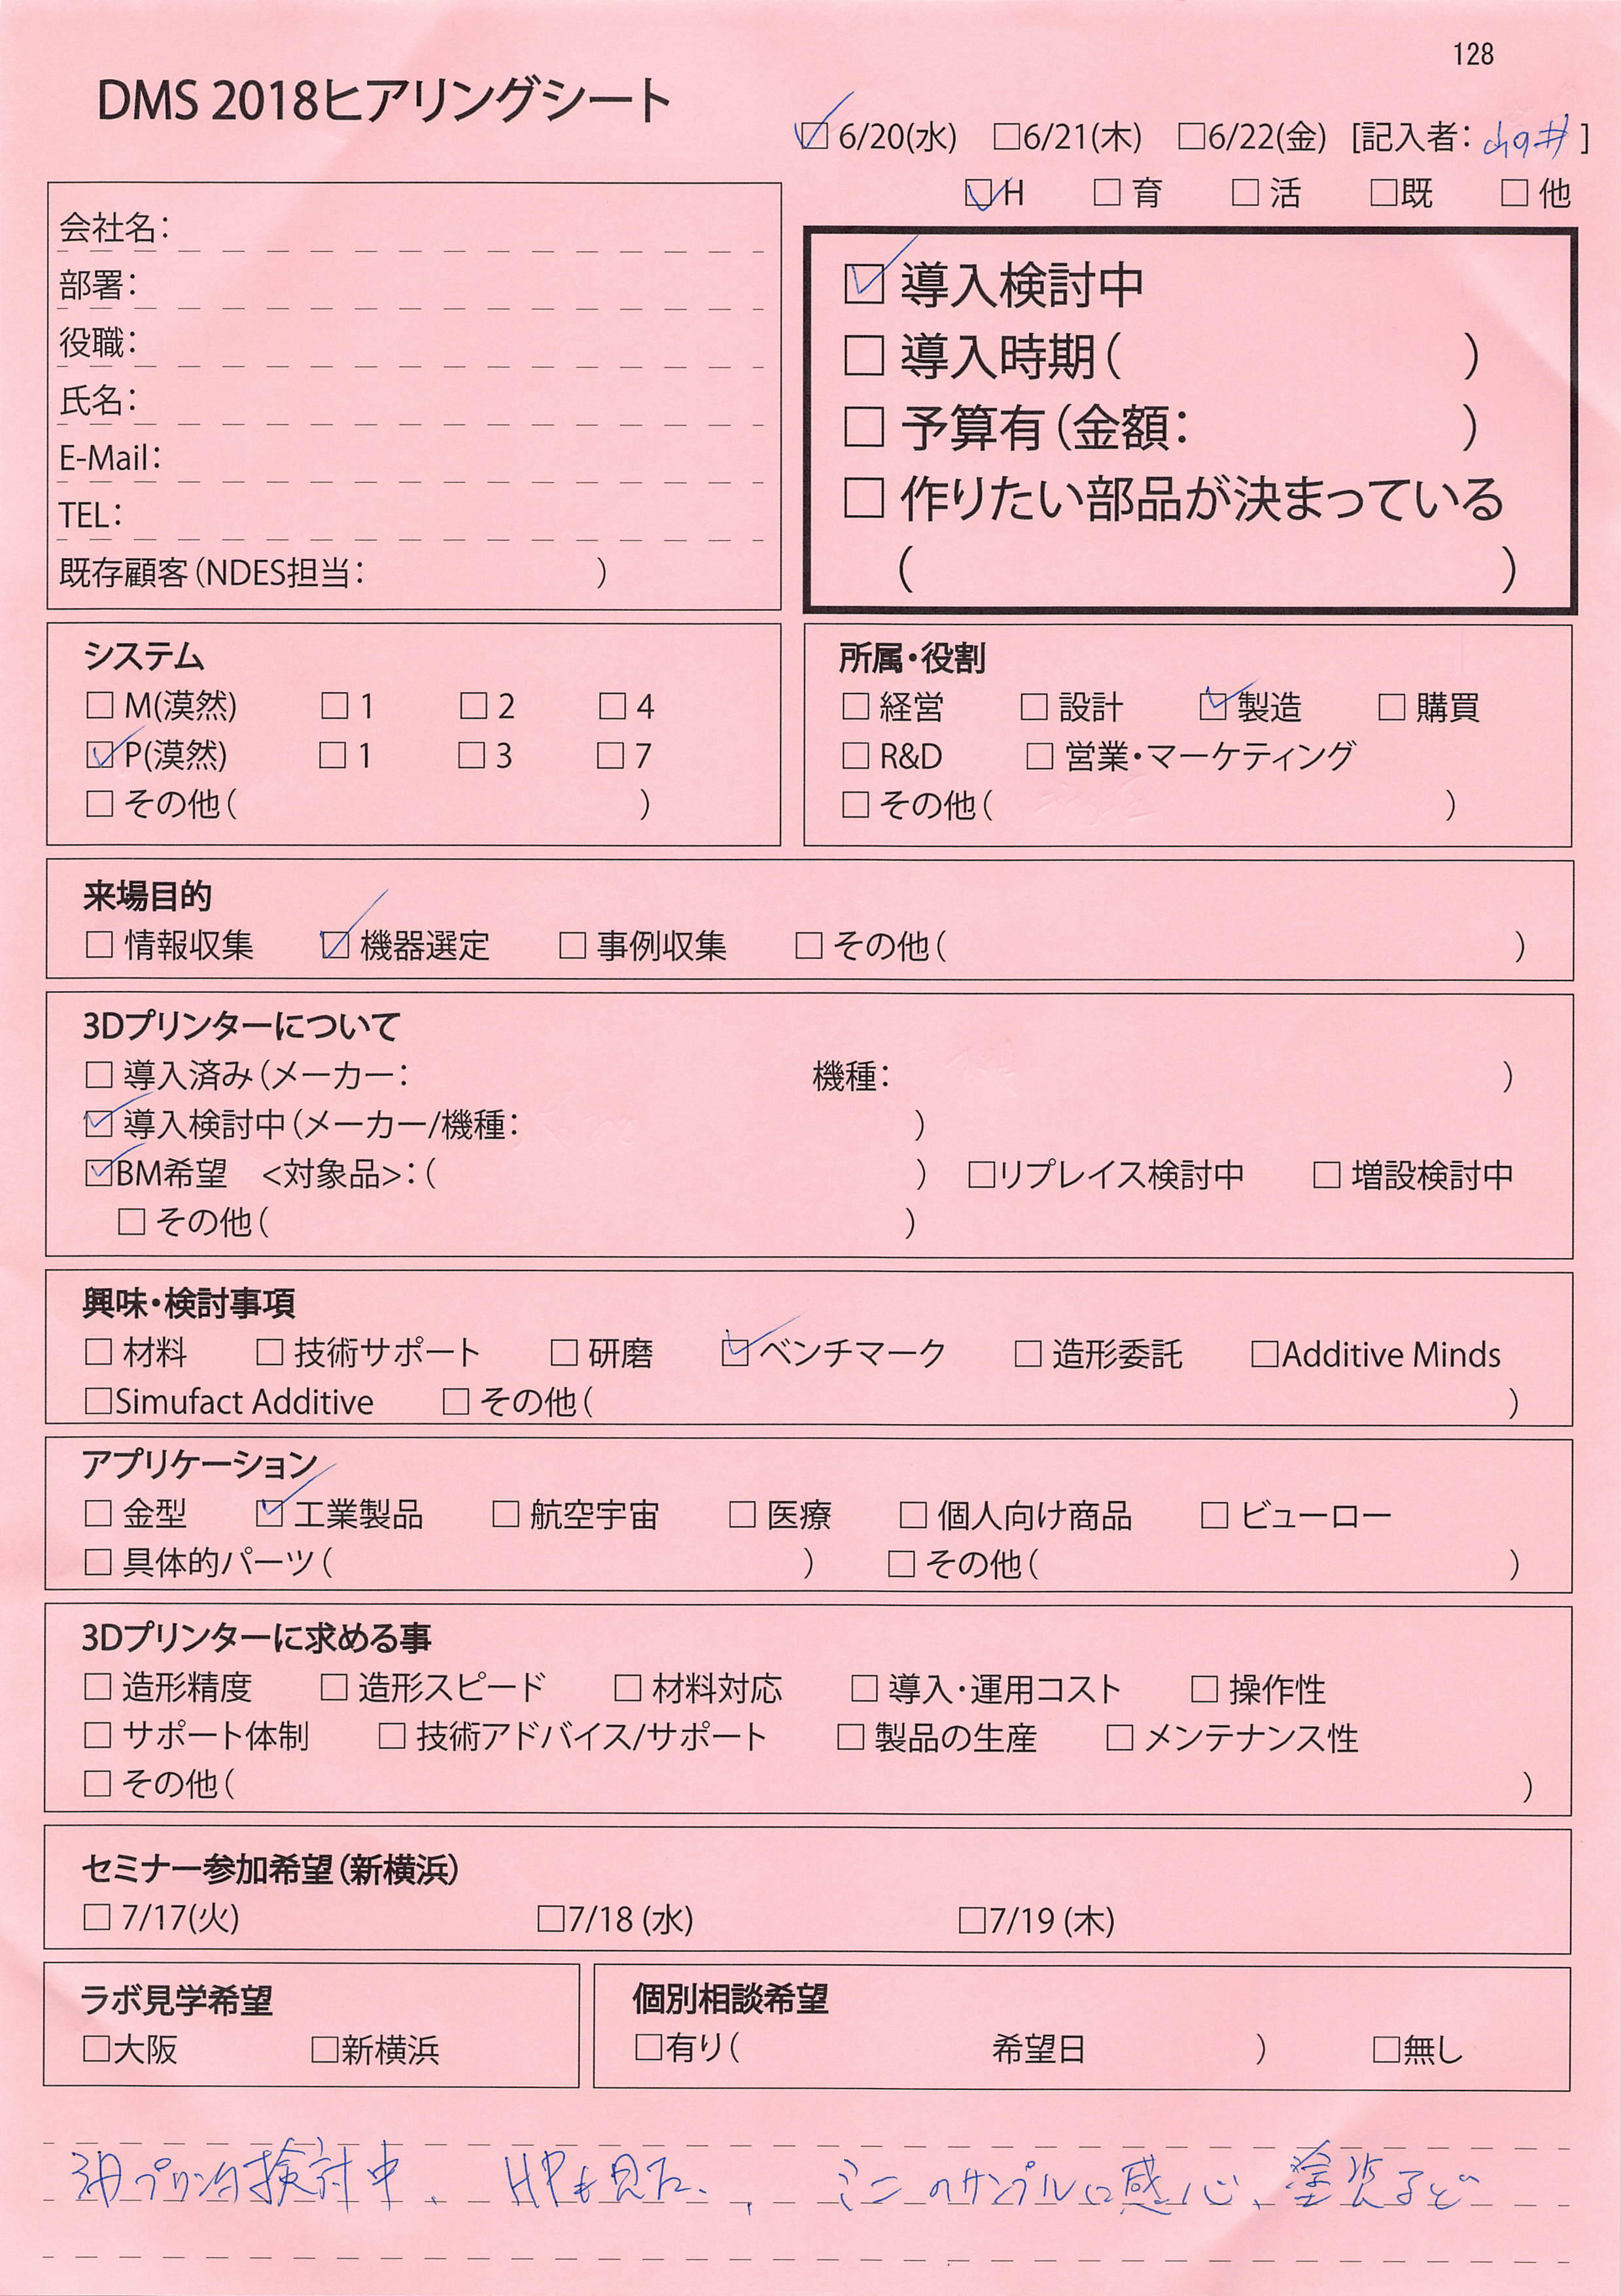 128
DMS 2018ヒアリングシート
☑ 6/20(水) □6/21(木) □6/22(金) [記入者: ]
☑H □ 育 □ 活 □既 □ 他
会社名:
部署:
役職:
氏名:
E-Mail:
TEL:
既存顧客(NDES担当: )
☑ 導入検討中
□ 導入時期( )
□ 予算有(金額: )
□ 作りたい部品が決まっている
( )
システム
□ M(漠然) □ 1 □ 2 □ 4
☑ P(漠然) □ 1 □ 3 □ 7
□ その他( )
所属・役割
□ 経営 □ 設計 ☑ 製造 □ 購買
□ R&D □ 営業・マーケティング
□ その他( )
来場目的
□ 情報収集 ☑ 機器選定 □ 事例収集 □ その他( )
3Dプリンターについて
□ 導入済み(メーカー: 機種: )
☑ 導入検討中(メーカー/機種: )
☑BM希望 <対象品>:( ) □リプレイス検討中 □ 増設検討中
□ その他( )
興味・検討事項
□ 材料 □ 技術サポート □ 研磨 ☑ベンチマーク □ 造形委託 □Additive Minds
□Simufact Additive □ その他( )
アプリケーション
□ 金型 ☑ 工業製品 □ 航空宇宙 □ 医療 □ 個人向け商品 □ ビューロー
□ 具体的パーツ( ) □ その他( )
3Dプリンターに求める事
□ 造形精度 □ 造形スピード □ 材料対応 □ 導入・運用コスト □ 操作性
□ サポート体制 □ 技術アドバイス/サポート □ 製品の生産 □ メンテナンス性
□ その他( )
セミナー参加希望(新横浜)
□ 7/17(火) □7/18 (水) □7/19 (木)
ラボ見学希望
□大阪 □新横浜
個別相談希望
□有り( 希望日 ) □無し
3Dプリンタ検討中、HPも見た、ミニのサンプルに感心、塗装など